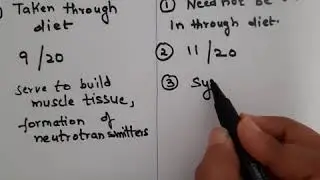 Taken through
diet
9/20
serve to build
muscle tissue,
formation of
neutrotransmitters
① Need not be
In through diet.
② 11/20
③ Sy